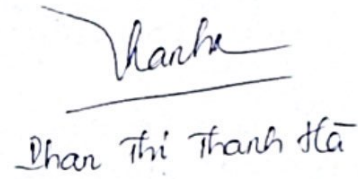 Thanh
Phan Thi Thanh Hà